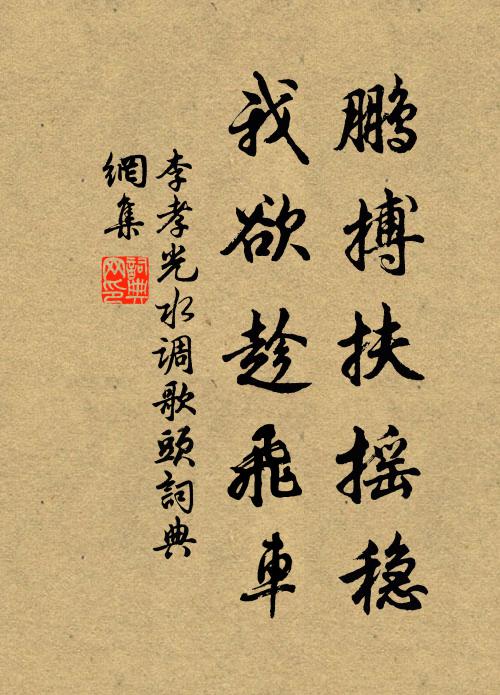 鹏搏扶摇稳
我欲趁飛車
李孝光水调歌頭詞典
網集
詞典網印